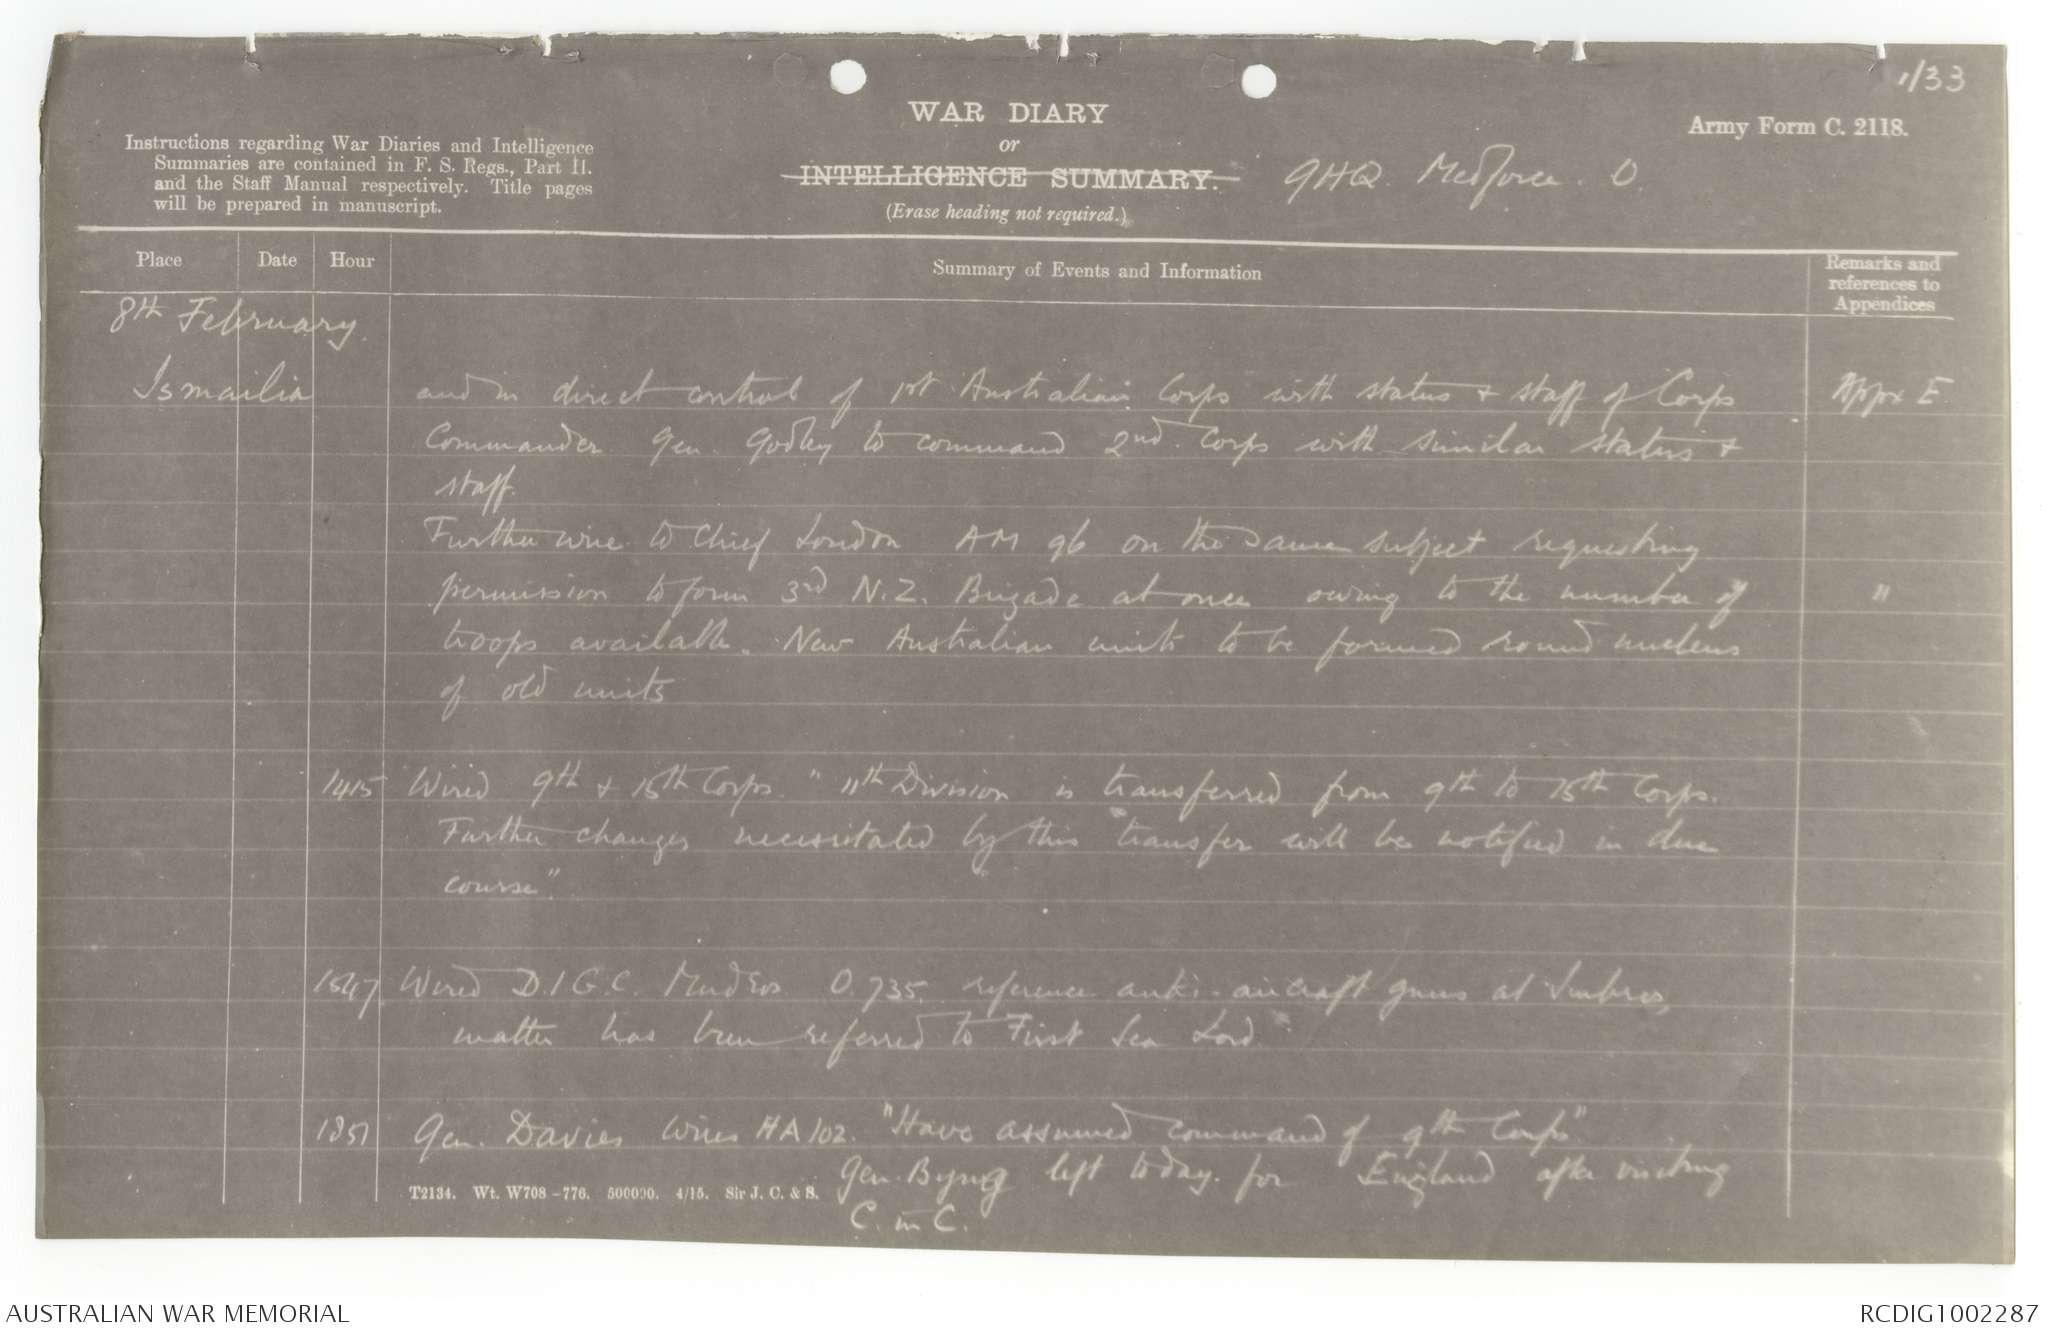 1/33
WAR DIARY
or
INTELLIGENCE SUMMARY.
(Erase heading not required.)
GHQ. Medforce. O.
Army Form C. 2118.
Instructions regarding War Diaries and Intelligence
Summaries are contained in F. S. Regs., Part II.
and the Staff Manual respectively. Title pages
will be prepared in manuscript.
Place Date Hour Summary of Events and Information Remarks and
references to
Appendices
8th February.
Ismailia and in direct control of 1st Australian Corps with status + staff of Corps Appx E
Commander Gen. Godley to command 2nd Corps with similar status +
staff.
Further wire to Chief London AM 96 on the same subject requesting
permission to form 3rd N.Z. Brigade at once owing to the number of "
troops available. New Australian units to be formed round nucleus
of old units
1415 Wired 9th + 15th Corps. "11th Division is transferred from 9th to 15th Corps.
Further changes necessitated by this transfer will be notified in due
course".
1547 Wired D.I.G.C. Mudros O.735. reference anti-aircraft guns at Imbros,
matter has been referred to First Sea Lord.
1851 Gen. Davies wires HA 102. "Have assumed command of 9th Corps"
Gen. Byng left today for England after visiting
C. in C.
T2134. Wt. W708-776. 500000. 4/15. Sir J. C. & S.
AUSTRALIAN WAR MEMORIAL
RCDIG1002287